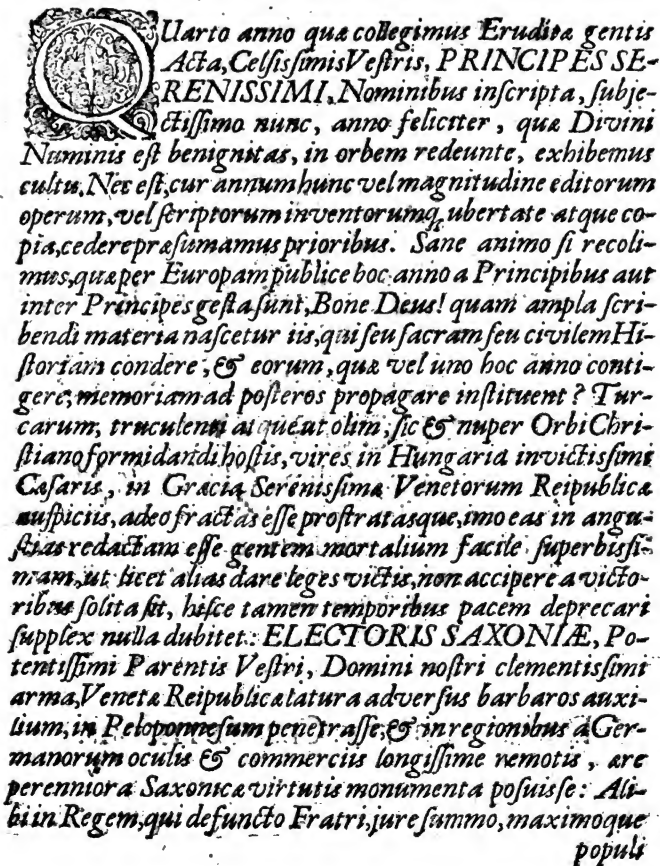 QUarto anno quæ collegimus Eruditæ gentis
Acta, Celsissimis Vestris, PRINCIPES SE-
RENISSIMI, Nominibus inscripta, subje-
ctissimo nunc, anno feliciter, quæ Divini
Numinis est benignitas, in orbem redeunte, exhibemus
cultu. Nec est, cur annum hunc vel magnitudine editorum
operum, vel scriptorum inventorumq; ubertate atque co-
pia, cedere præsumamus prioribus. Sane animo si recoli-
mus, quæ per Europam publice hoc anno a Principibus aut
inter Principes gesta sunt, Bone Deus! quam ampla scri-
bendi materia nascetur iis, qui seu sacram seu civilem Hi-
storiam condere, & eorum, quæ vel uno hoc anno conti-
gere, memoriam ad posteros propagare instituent? Tur-
carum, truculenti atque ut olim, sic & nuper Orbi Chri-
stiano formidandi hostis, vires in Hungaria invictissimi
Cæsaris, in Græcia Serenissimæ Venetorum Reipublicæ
auspiciis, adeo fractas esse prostratasque, imo eas in angu-
stias redactam esse gentem mortalium facile superbissi-
mam, ut licet alias dare leges victis, non accipere a victo-
ribus solita sit, hisce tamen temporibus pacem deprecari
supplex nulla dubitet: ELECTORIS SAXONIÆ, Po-
tentissimi Parentis Vestri, Domini nostri clementissimi
arma, Venetæ Reipublicæ latura adversus barbaros auxi-
lium, in Peloponnesum penetrasse, & in regionibus a Ger-
manorum oculis & commerciis longissime remotis, ære
perenniora Saxonicæ virtutis monumenta posuisse: Ali-
bi in Regem, qui defuncto Fratri, jure summo, maximoque
populi